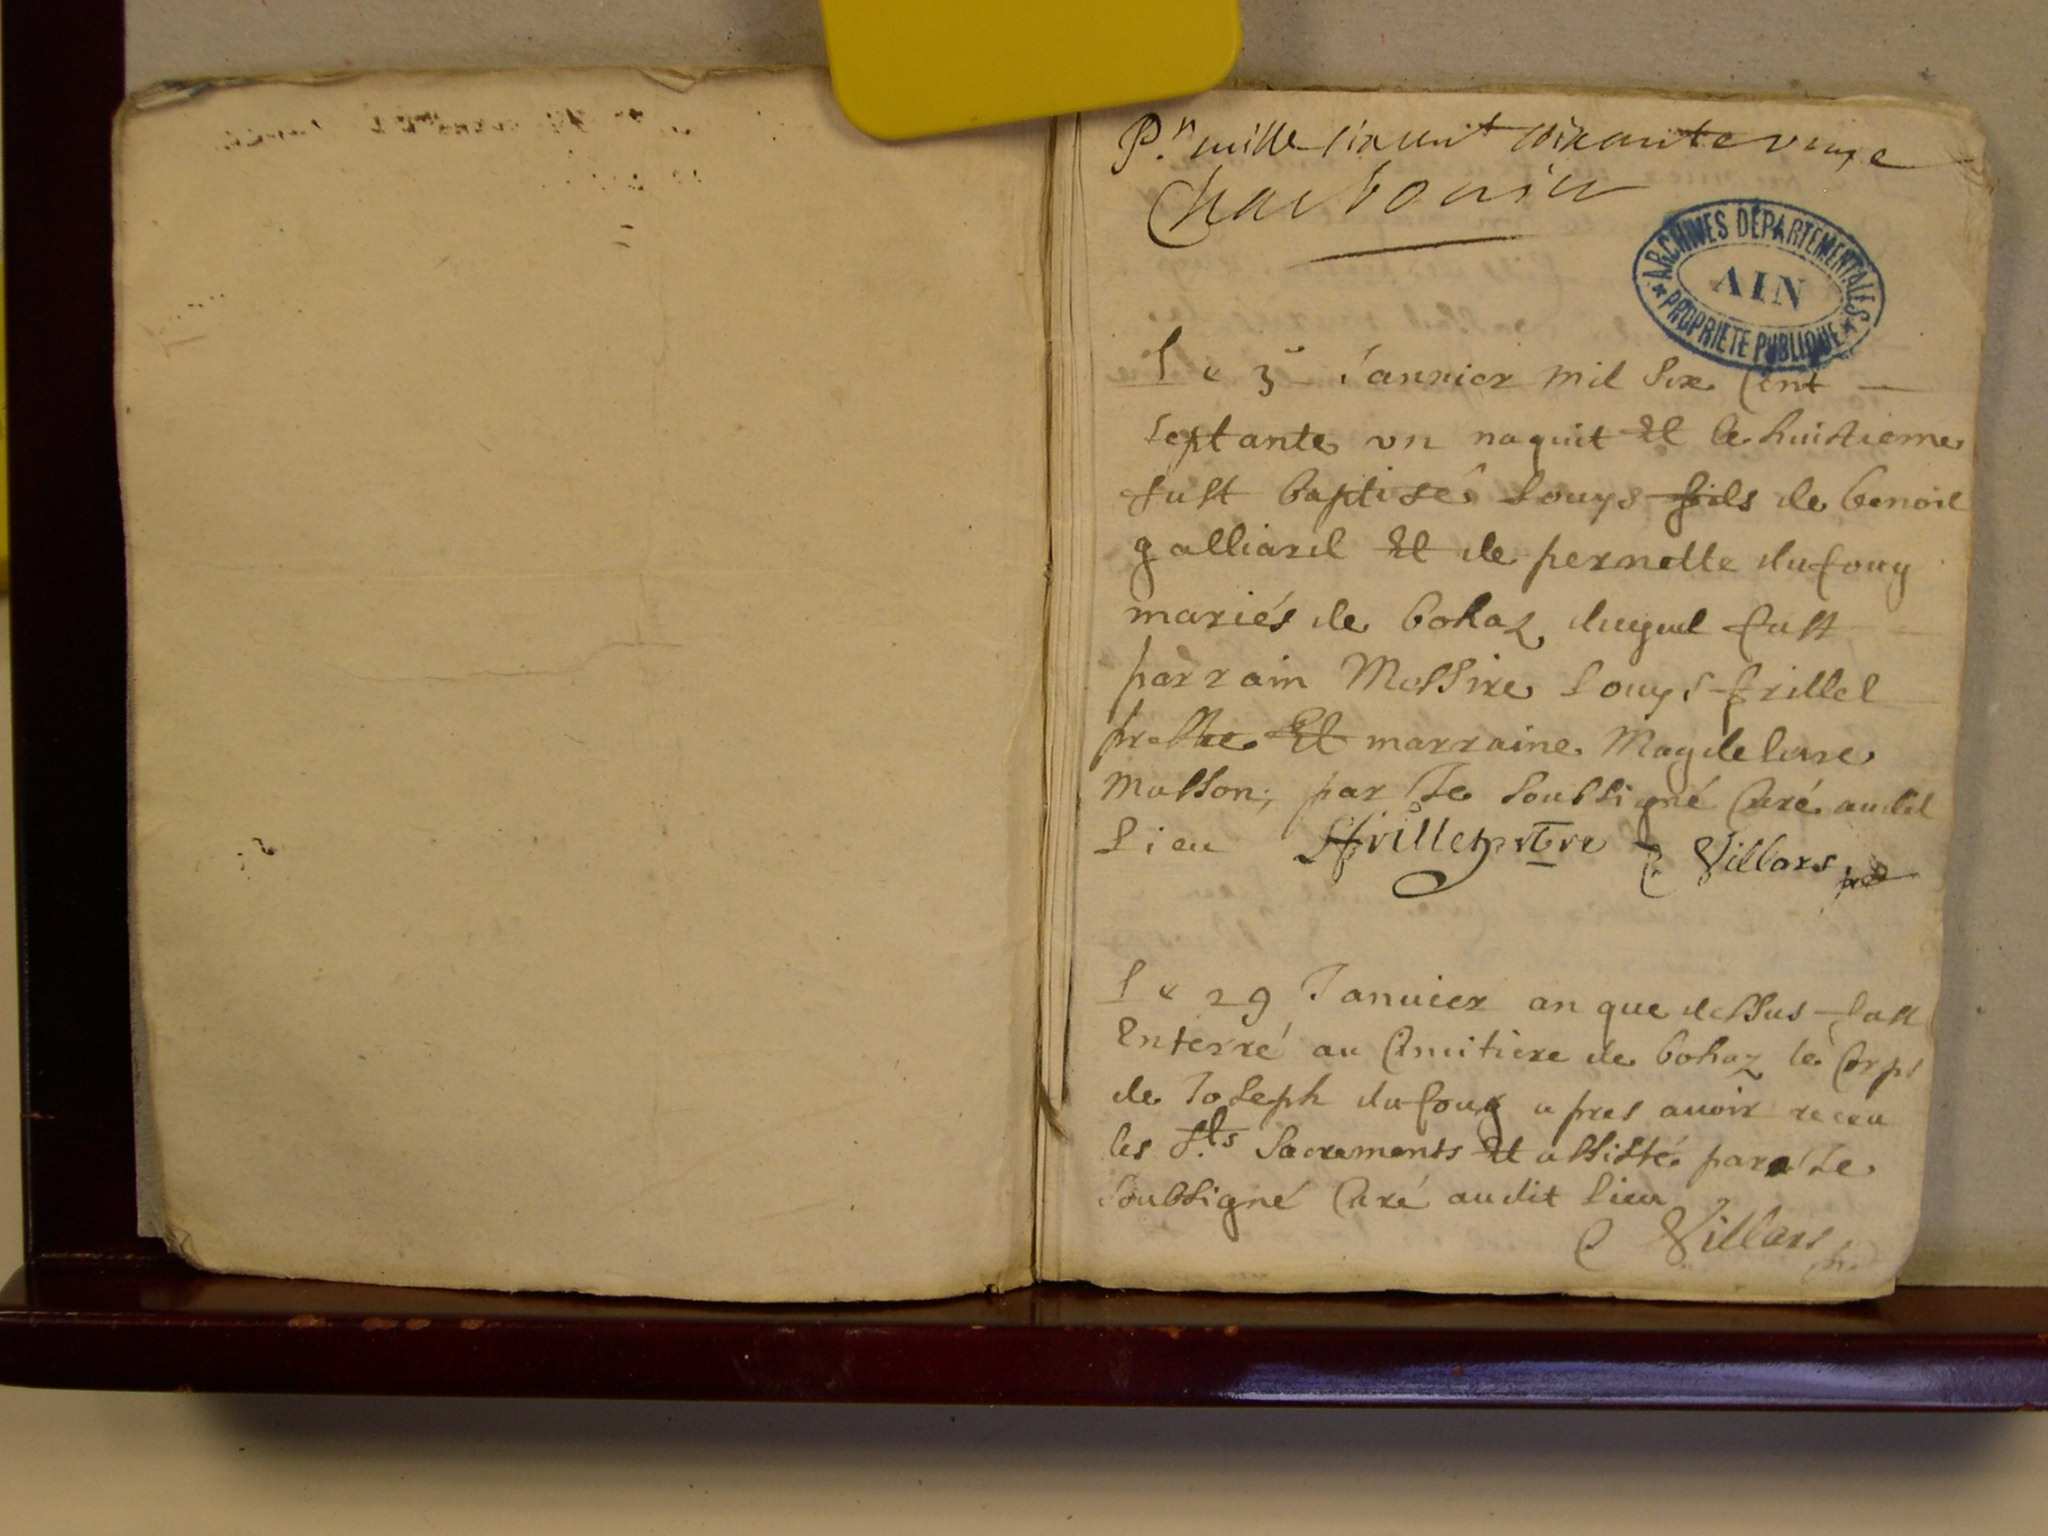 P.r mille six cent soixante unze
Charbonier
ARCHIVES DÉPARTEMENTALES
AIN
PROPRIETE PUBLIQUE
Le 3e Januier mil Six Cent
septante vn naquit Et le huistieme
fust baptisé Louys fils de benoit
galliard Et de pernette dufour
mariés de bohaz duquel fust
parrain Messire Louys frillet
prestre Et marraine Magdeleine
Masson; par Je soubsigné Curé audit
Lieu Lfrillet prtre C Villars
Le 29 Januier an que dessus fust
Enterré au Cimitiere de bohaz le Corps
de Joseph dufour apres auoir receu
les Sts Sacrements Et assisté par Je
soubsigné Curé audit Lieu
C Villars